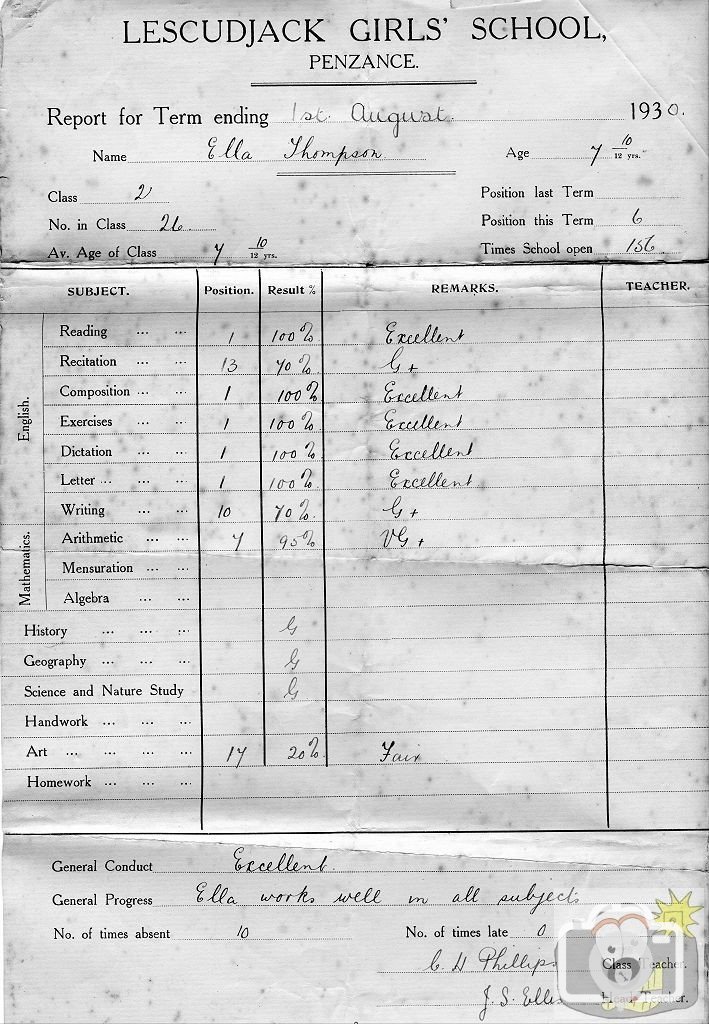 LESCUDJACK GIRLS' SCHOOL,
PENZANCE.
Report for Term ending 1st. August. 1930.
Name Ella Thompson Age 7 10/12 yrs.
Class 2 Position last Term
No. in Class 26 Position this Term 6
Av. Age of Class 7 10/12 yrs. Times School open 156
SUBJECT. Position. Result % REMARKS. TEACHER.
English.
Reading ... ... 1 100% Excellent
Recitation ... ... 13 70% G+
Composition ... ... 1 100% Excellent
Exercises ... ... 1 100% Excellent
Dictation ... ... 1 100% Excellent
Letter ... ... 1 100% Excellent
Writing ... ... 10 70% G+
Mathematics.
Arithmetic ... ... 7 95% VG+
Mensuration ... ...
Algebra ... ...
History ... ... ... G
Geography ... ... ... G
Science and Nature Study G
Handwork ... ... ...
Art ... ... ... ... 17 20% Fair
Homework ... ... ...
General Conduct Excellent
General Progress Ella works well in all subjects
No. of times absent 10 No. of times late 0
Phillips Class Teacher.
J. S. Ellis Head Teacher.